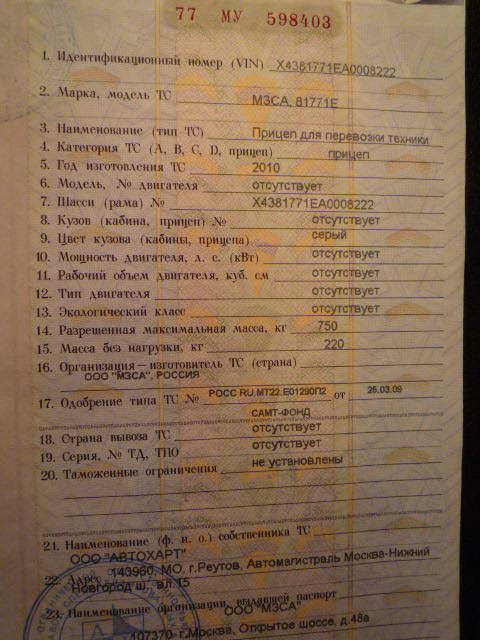 77 МУ 598403
1. Идентификационный номер (VIN) X4381771EA0008222
2. Марка, модель ТС МЗСА, 81771Е
3. Наименование (тип ТС) Прицеп для перевозки техники
4. Категория ТС (А, В, С, D, прицеп) прицеп
5. Год изготовления ТС 2010
6. Модель, № двигателя отсутствует
7. Шасси (рама) № X4381771EA0008222
8. Кузов (кабина, прицеп) № отсутствует
9. Цвет кузова (кабины, прицепа) серый
10. Мощность двигателя, л. с. (кВт) отсутствует
11. Рабочий объем двигателя, куб. см отсутствует
12. Тип двигателя отсутствует
13. Экологический класс отсутствует
14. Разрешенная максимальная масса, кг 750
15. Масса без нагрузки, кг 220
16. Организация—изготовитель ТС (страна)
ООО "МЗСА", РОССИЯ
17. Одобрение типа ТС № РОСС RU.МТ22.Е01290П2 от 26.03.09
САМТ-ФОНД
18. Страна вывоза ТС отсутствует
19. Серия, № ТД, ТПО отсутствует
20. Таможенные ограничения не установлены
21. Наименование (ф. и. о.) собственника ТС
ООО "АВТОХАРТ"
22. Адрес 143960, МО, г.Реутов, Автомагистраль Москва-Нижний
Новгород ш., вл.15
23. Наименование организации, выдавшей паспорт
ООО "МЗСА"
107370 г.Москва, Открытое шоссе, д.48а